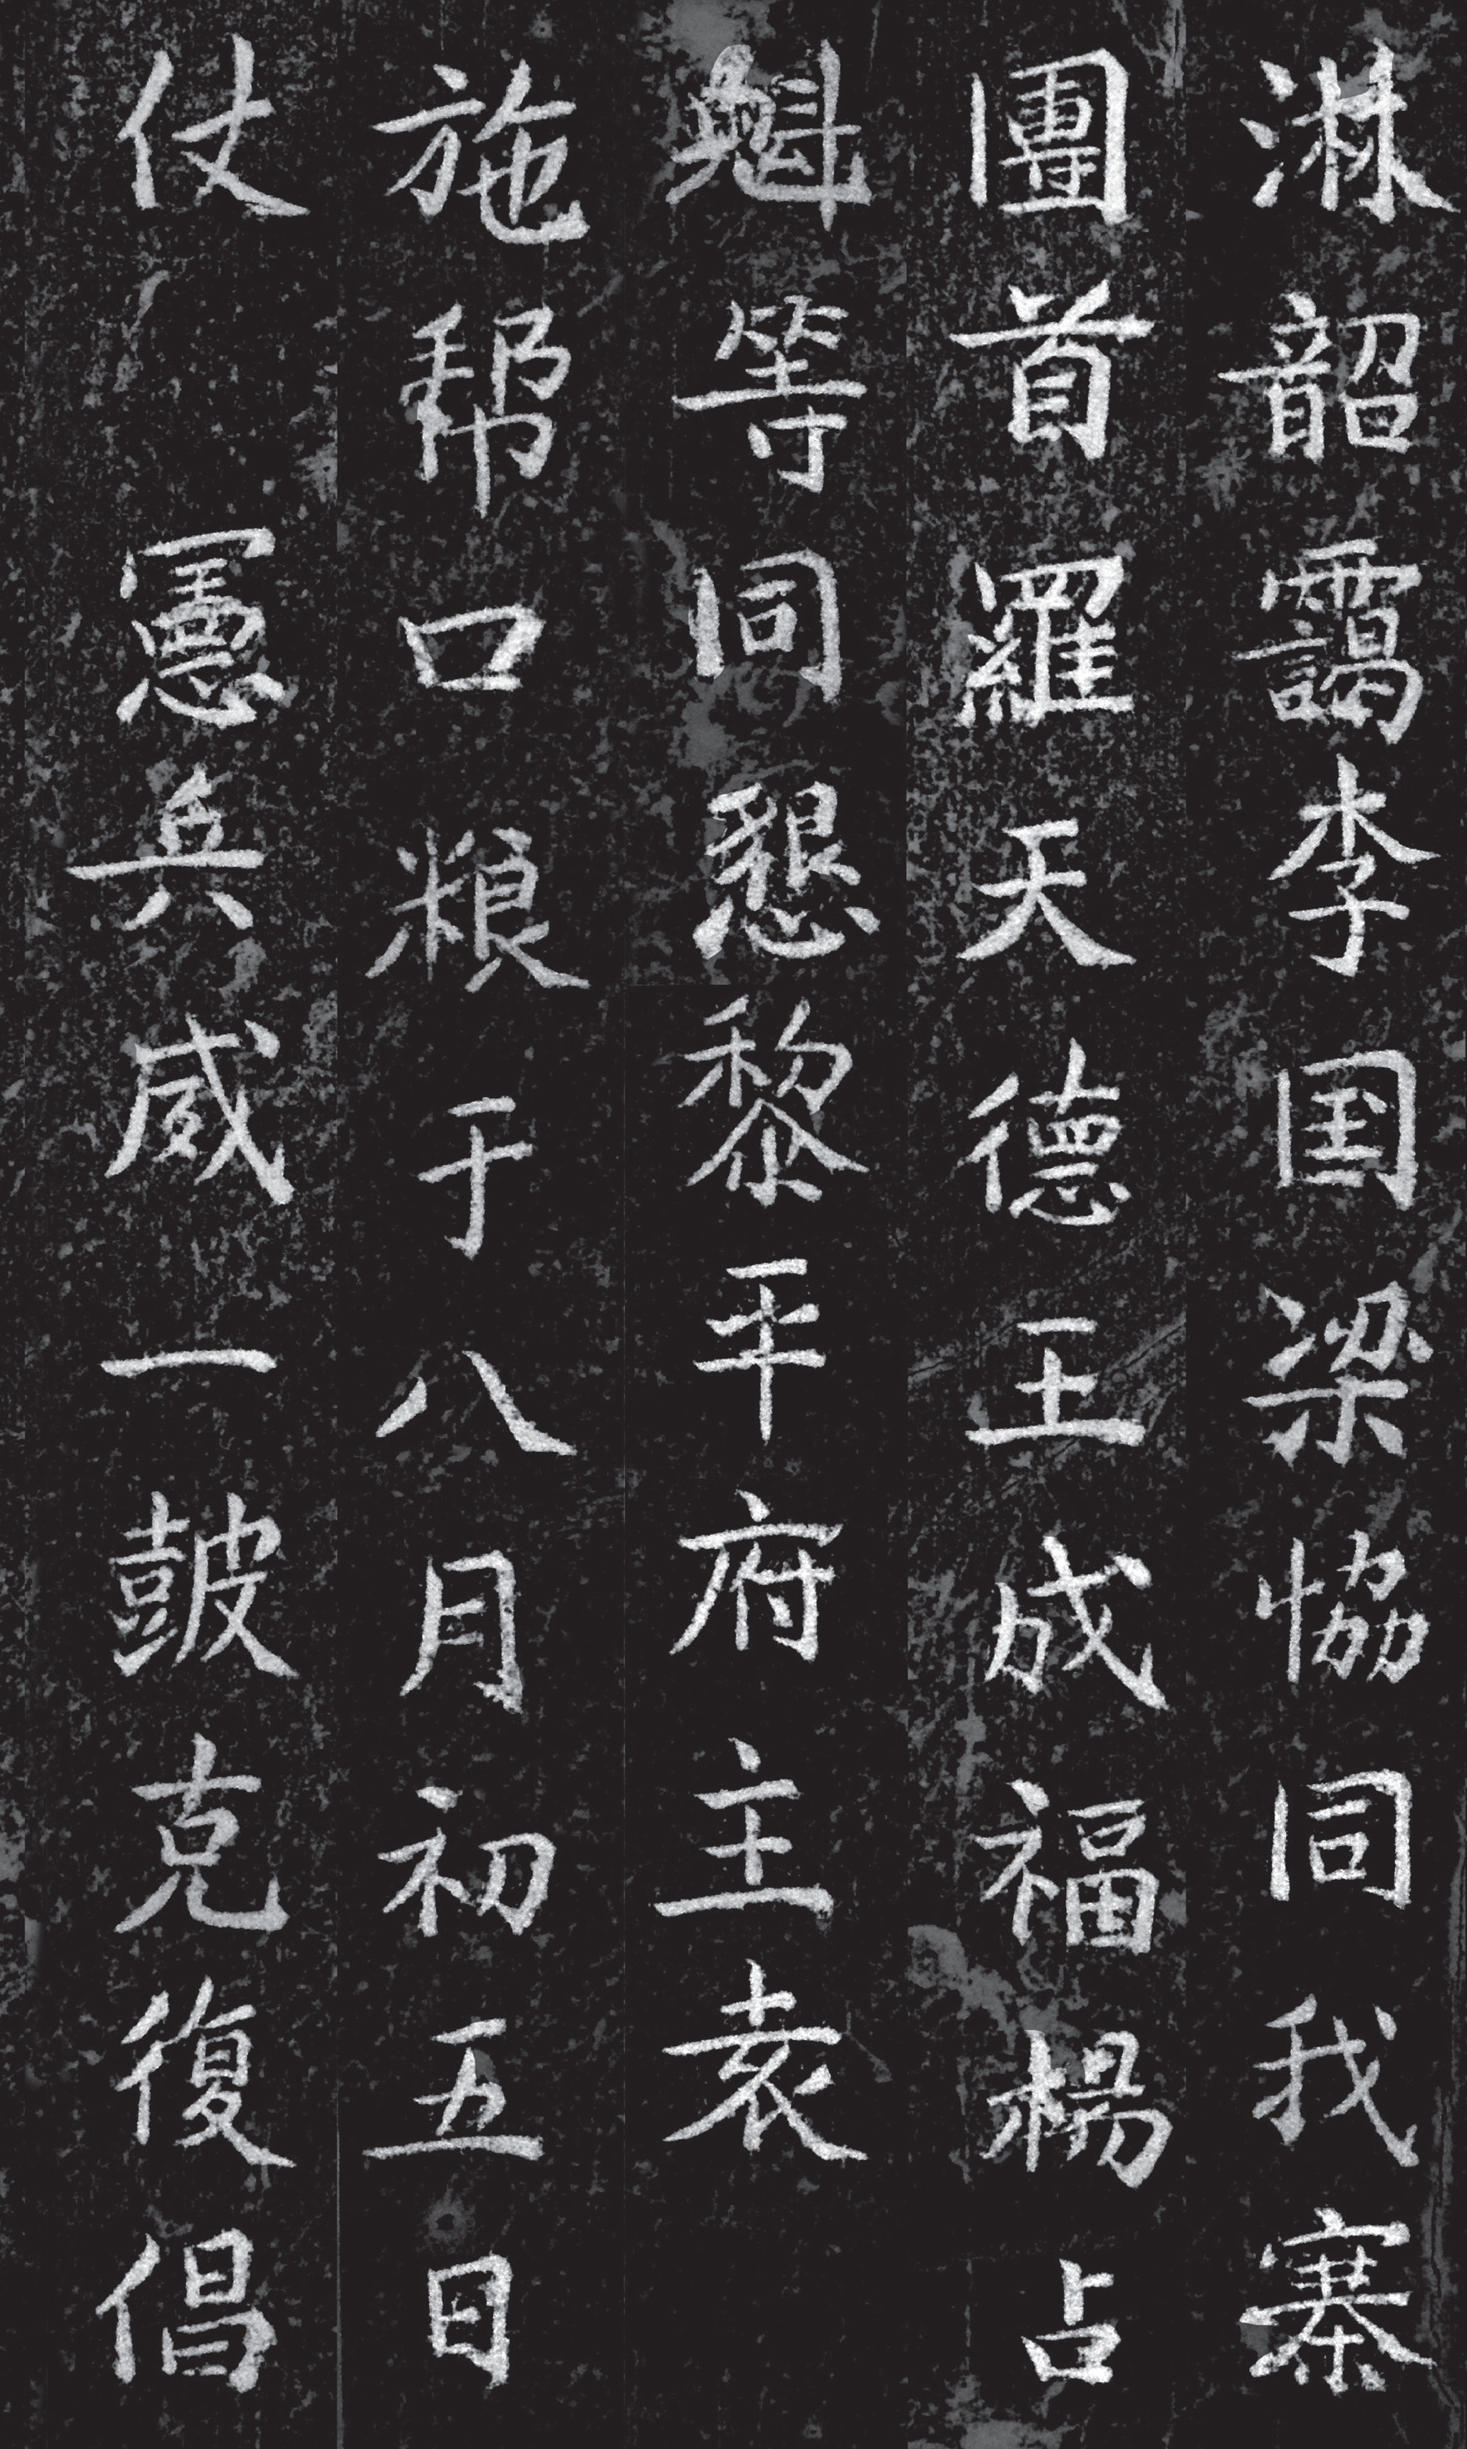 淋韶靄李国梁恊同我寨
團首羅天德王成福楊占
魁等同懇黎平府主袁
施帮口粮于八月初五日
仗　憲兵威一皷克復倡